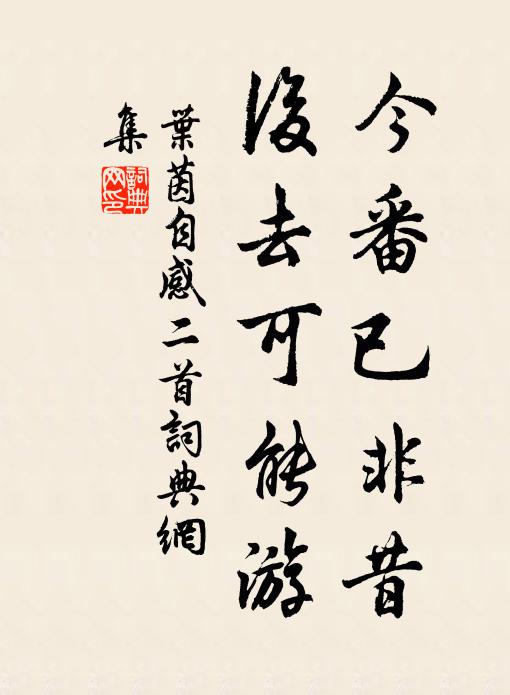 今番已非昔
後去可能游
葉茵自感二首詞典網
集
詞典
網印